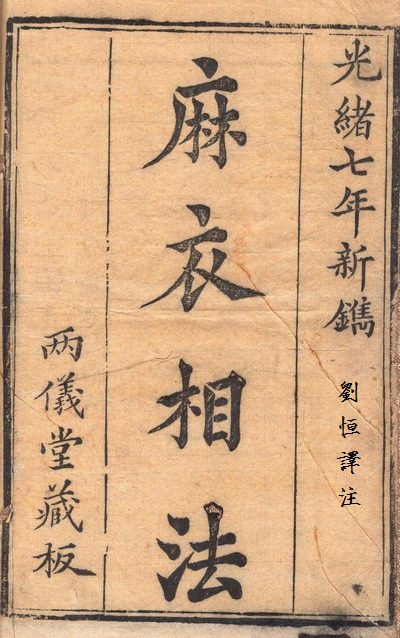 光緒七年新鐫
劉恒譯注
麻衣相法
两儀堂藏板